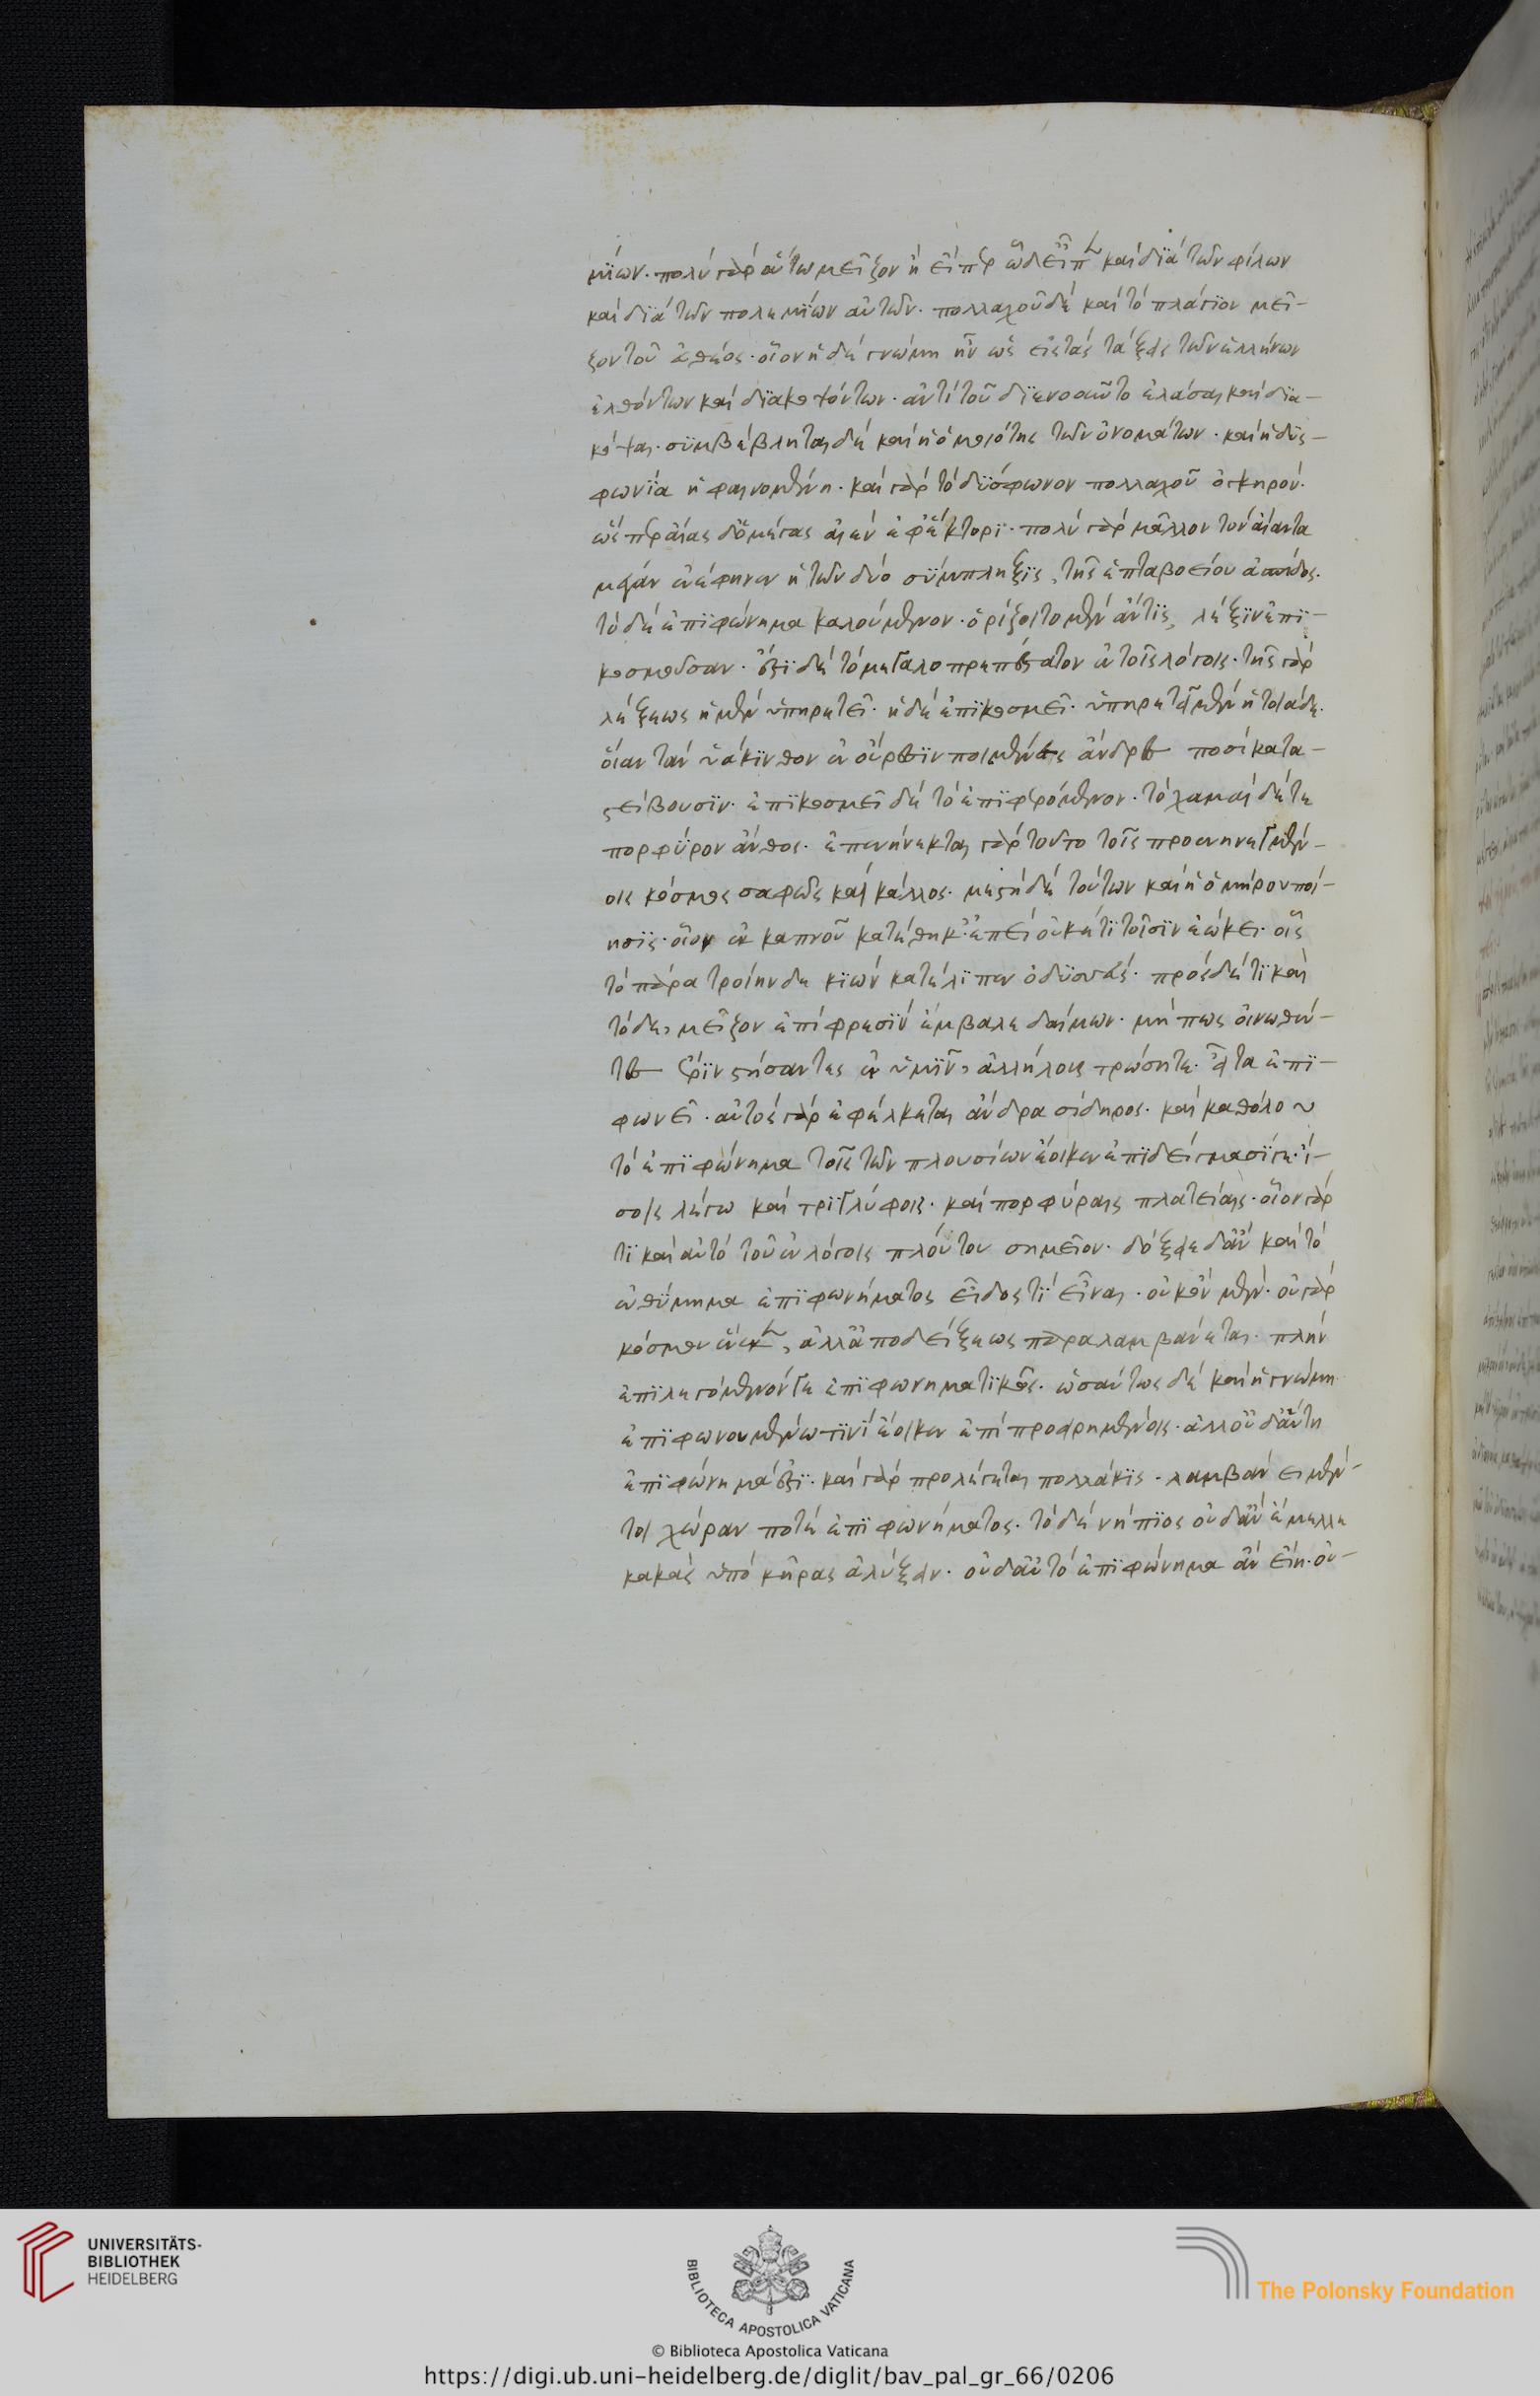 μίων. πολὺ γὰρ οὕτω μεῖζον ἢ εἴπερ ὧδε εἶπεν καὶ διὰ τῶν φίλων
καὶ διὰ τῶν πολεμίων αὐτῶν. πολλαχοῦ δὲ καὶ τὸ πλάγιον μεῖ-
ζον τοῦ εὐθέος. οἷον ἡ δὲ γνώμη ἦν ὡς εἰς τὰς τάξεις τῶν ἑλλήνων
ἐλθόντων καὶ διακοψόντων. ἀντὶ τοῦ διενοοῦντο ἐλάσαι καὶ δια-
κόψαι. συμβέβληται δὲ καὶ ἡ ὁμοιότης τῶν ὀνομάτων. καὶ ἡ δυς-
φωνία ἡ φαινομένη. καὶ γὰρ τὸ δύσφωνον πολλαχοῦ ὀγκηρόν.
ὥσπερ αἴας δ' ὁ μέγας αἰὲν ἐφ' ἕκτορι. πολὺ γὰρ μᾶλλον τὸν αἴαντα
μέγαν ἐνέφηνεν ἡ τῶν δύο σύμπληξις, τῆς ἑπταβοείου ἀσπίδος.
τὸ δὲ ἐπιφώνημα καλούμενον. ὁρίζοιτο μὲν ἄν τις, λέξιν ἐπι-
κοσμοῦσαν. ἔστι δὲ τὸ μεγαλοπρεπέστατον ἐν τοῖς λόγοις. τῆς γὰρ
λέξεως ἡ μὲν ὑπηρετεῖ. ἡ δὲ ἐπικοσμεῖ. ὑπηρετεῖ μὲν ἡ τοιάδε.
οἵαν τὰν ὑάκινθον ἐν οὔρεσιν ποιμένες ἄνδρες ποσὶ κατα-
στείβουσιν. ἐπικοσμεῖ δὲ τὸ ἐπιφερόμενον. τὸ χαμαὶ δέ τε
πορφύρον ἄνθος. ἐπενήνεκται γὰρ τοῦτο τοῖς προενηνεγμέν-
οις κόσμος σαφῶς καὶ κάλλος. μεστὴ δὲ τούτων καὶ ἡ ὁμήρου ποί-
ησις. οἷον ἐκ καπνοῦ κατέθηκ' ἐπεὶ οὐκέτι τοῖσιν ἐῴκει. οἷς
τὸ πάρα τροίηνδε κιὼν κατέλιπεν ὀδυσσεύς. πρὸς δ' ἔτι καὶ
τόδε, μεῖζον ἐπὶ φρεσὶν ἔμβαλε δαίμων. μή πως οἰνωθέν-
τες ἔριν στήσαντες ἐν ὑμῖν, ἀλλήλους τρώσητε. εἶτα ἐπι-
φωνεῖ. αὐτὸς γὰρ ἐφέλκεται ἄνδρα σίδηρος. καὶ καθόλου
τὸ ἐπιφώνημα τοῖς τῶν πλουσίων ἔοικεν ἐπιδείγμασι γεί-
σοις λέγω καὶ τριγλύφοις. καὶ πορφύραις πλατείαις. οἷον γάρ
τι καὶ αὐτὸ τοῦ ἐν λόγοις πλούτου σημεῖον. δόξειε δ' ἂν καὶ τὸ
ἐνθύμημα ἐπιφωνήματος εἶδός τι εἶναι. οὐκ ὂν μέν. οὐ γὰρ
κόσμου ἕνεκεν, ἀλλ' ἀποδείξεως παραλαμβάνεται. πλὴν
ἐπιλεγόμενόν γε ἐπιφωνηματικῶς. ὡσαύτως δὲ καὶ ἡ γνώμη
ἐπιφωνουμένῳ τινὶ ἔοικεν ἐπὶ προειρημένοις. ἀλλ' οὐδ' αὕτη
ἐπιφώνημά ἐστι. καὶ γὰρ προλέγεται πολλάκις. λαμβάνει μέν-
τοι χώραν ποτὲ ἐπιφωνήματος. τὸ δὲ νήπιος οὐδ' ἄρ' ἔμελλε
κακὰς ὑπὸ κῆρας ἀλύξειν. οὐδ' αὐτὸ ἐπιφώνημα ἂν εἴη. οὐ-
UNIVERSITÄTS-
BIBLIOTHEK
HEIDELBERG
BIBLIOTECA APOSTOLICA VATICANA
The Polonsky Foundation
© Biblioteca Apostolica Vaticana
https://digi.ub.uni-heidelberg.de/diglit/bav_pal_gr_66/0206